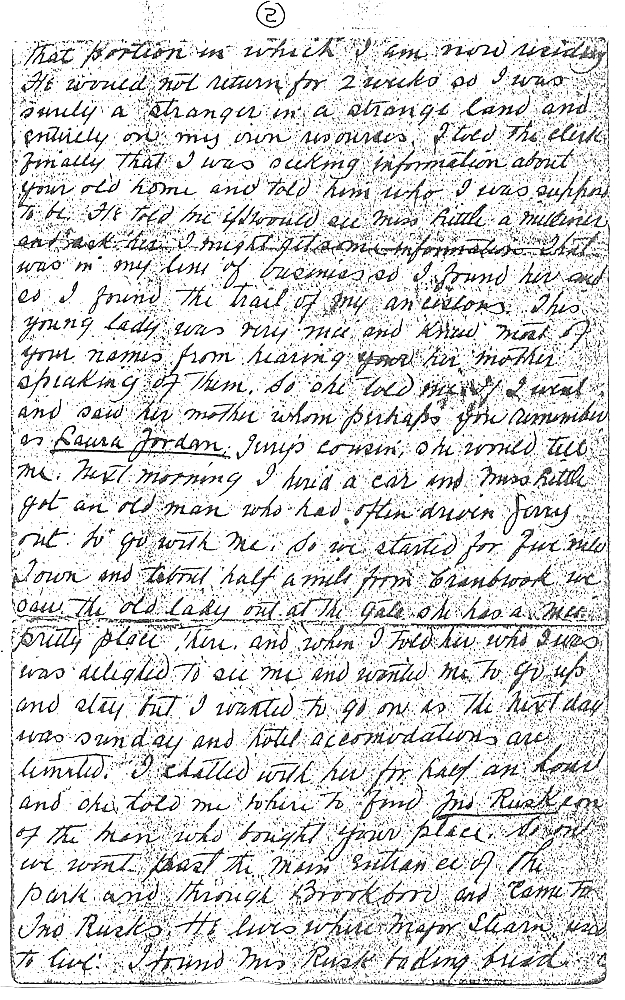 2
that portion in which I am now residing
He would not return for 2 weeks so I was
surely a stranger in a strange land and
entirely on my own resources. I told the clerk
finally that I was seeking information about
your old home and told him who I was suppos
to be. He told me if I would see Miss Kittle a milliner
and ask her I might get some information. That
was in my line of business so I found her and
so I found the trail of my ancestors. This
young lady was very nice and knew most of
your names from hearing your her mother
speaking of them. So she told me if I went
and saw her mother whom perhaps you remember
as Laura Jordan. cousin, she would tell
me. Next morning I hired a car and Miss Kittle
got an old man who had often driven Jerry
out to go with me. So we started for Five mile
Town and about half a mile from Cranbrook we
saw the old lady out at the gate she has a
pretty place here. and when I told her who I was
was delighed to see me and wanted me to go up
and stay but I wanted to go on as the next day
was sunday and hotel accomodations are
limited. I chatted with her for half an hour
and she told me where to find Jno Rusk son
of the man who bought your place. So on
we went past the main Entrance of the
park and through and came to
Jno Rusks. He lives where Major Stearn use
to live. I found Mrs Rusk baking bread